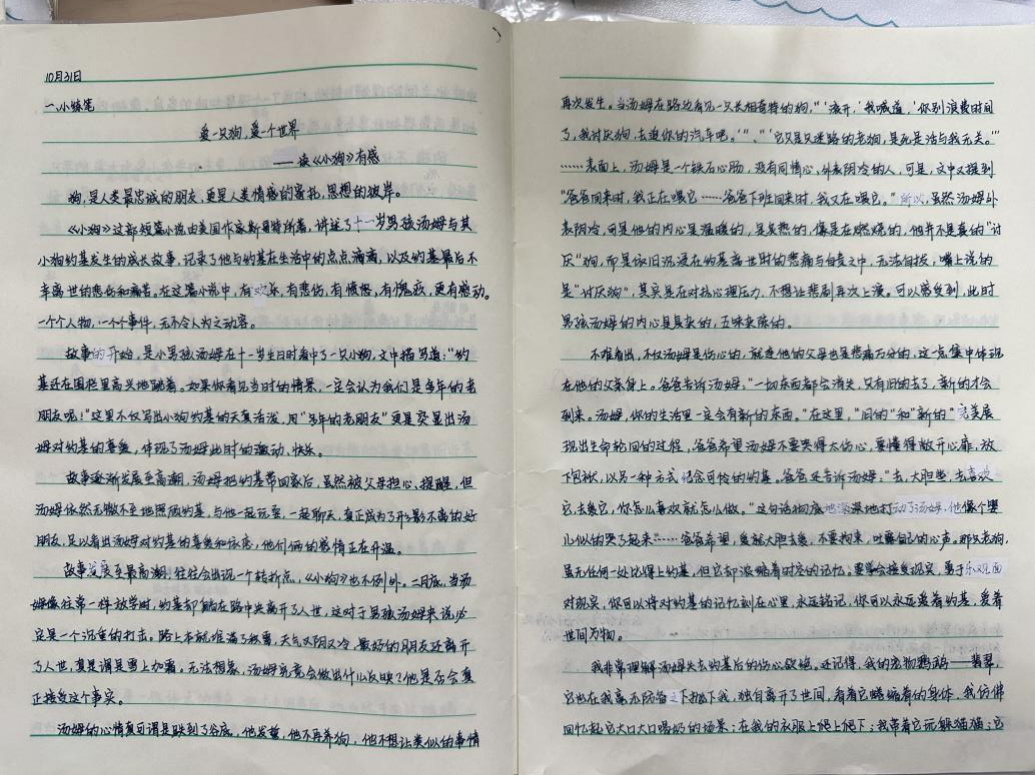 10月31日
一.小练笔
爱一只狗，爱一个世界
——读《小狗》有感
狗，是人类最忠诚的朋友，更是人类情感的寄托，思想的彼岸。
《小狗》这部短篇小说由美国作家斯哥特所著，讲述了十一岁男孩汤姆与其
小狗约基发生的成长故事，记录了他与约基在生活中的点点滴滴，以及约基最后不
幸离世的悲伤和痛苦。在这篇小说中，有欢乐，有悲伤，有愤怒，有愧疚，更有感动。
一个个人物，一个个事件，无不令人为之动容。
故事的开始，是小男孩汤姆在十一岁生日时看中了一只小狗，文中描写道："约
基还在围栏里高兴地跳着。如果你看见当时的情景，一定会认为我们是多年的老
朋友呢！"这里不仅写出小狗约基的天真活泼，用"多年的老朋友"更是突显出汤
姆对约基的喜爱，体现了汤姆此时的激动、快乐。
故事逐渐发展至高潮，汤姆把约基带回家后，虽然被父母担心、提醒，但
汤姆依然无微不至地照顾约基，与他一起玩耍，一起聊天，真正成为了形影不离的好
朋友，足以看出汤姆对约基的喜爱和依恋，他们俩的感情正在升温。
故事发展至最高潮，往往会出现一个转折点，《小狗》也不例外。二月底，当汤
姆像往常一样放学时，约基却躺在路中央离开了人世，这对于男孩汤姆来说必
定是一个沉重的打击。路上本就堆满了积雪，天气又阴又冷，最好的朋友还离开
了人世，真是谓是雪上加霜，无法想象，汤姆究竟会做出什么反映？他是否会真
正接受这个事实。
汤姆的心情真可谓是跌到了谷底，他发誓，他不再养狗，他不想让类似的事情
再次发生。当汤姆在路边看见一只长相奇特的狗，"'滚开，'我喊道，'你别浪费时间
了，我讨厌狗，去追你的汽车吧。'"、"'它只是只迷路的老狗，是死是活与我无关。'"
……表面上，汤姆是一个铁石心肠，没有同情心，外表阴冷的人，可是，文中又提到
"爸爸回来时，我正在喂它……爸爸下班回来时，我又在喂它。"所以，虽然汤姆外
表阴冷，可是他的内心是温暖的，是炙热的，像是在燃烧的，他并不是真的"讨
厌"狗，而是依旧沉浸在约基离世时的悲痛与自责之中，无法自拔，嘴上说的
是"讨厌狗"，其实是在对抗心理压力，不想让悲剧再次上演。可以感受到，此时
男孩汤姆的内心是复杂的，五味杂陈的。
不难看出，不仅汤姆是伤心的，就连他的父母也是悲痛万分的，这一点集中体现
在他的父亲身上。爸爸告诉汤姆，"一切东西都会消失，只有旧的去了，新的才会
到来。汤姆，你的生活里一定会有新的东西。"在这里，"旧的"和"新的"完美展
现出生命轮回的过程，爸爸希望汤姆不要哭得太伤心，要懂得敞开心扉，放
下包袱，以另一种方式纪念可怜的约基。爸爸还告诉汤姆，"去，大胆些，去喜欢
它，去爱它，你怎么喜欢就怎么做。"这句话彻底地深深地打动了汤姆，他像个婴
儿似的哭了起来"……爸爸希望，爱就大胆去爱，不要拘束，吐露自己的心声。那只老狗，
虽无任何一处比得上约基，但它却浓缩着时空的记忆。要学会接受现实，勇于乐观面
对现实，你可以将对约基的记忆刻在心里，永远铭记，你可以永远爱着约基，爱着
世间万物。
我非常理解汤姆失去约基后的伤心欲绝，还记得，我的宠物鹦鹉——翡翠，
它也在我毫无防备之下抛下我，独自离开了世间，看着它蜷缩着的身体，我仿佛
回忆起它大口大口喝奶的场景；在我的衣服上爬上爬下；我带着它玩躲猫猫；它